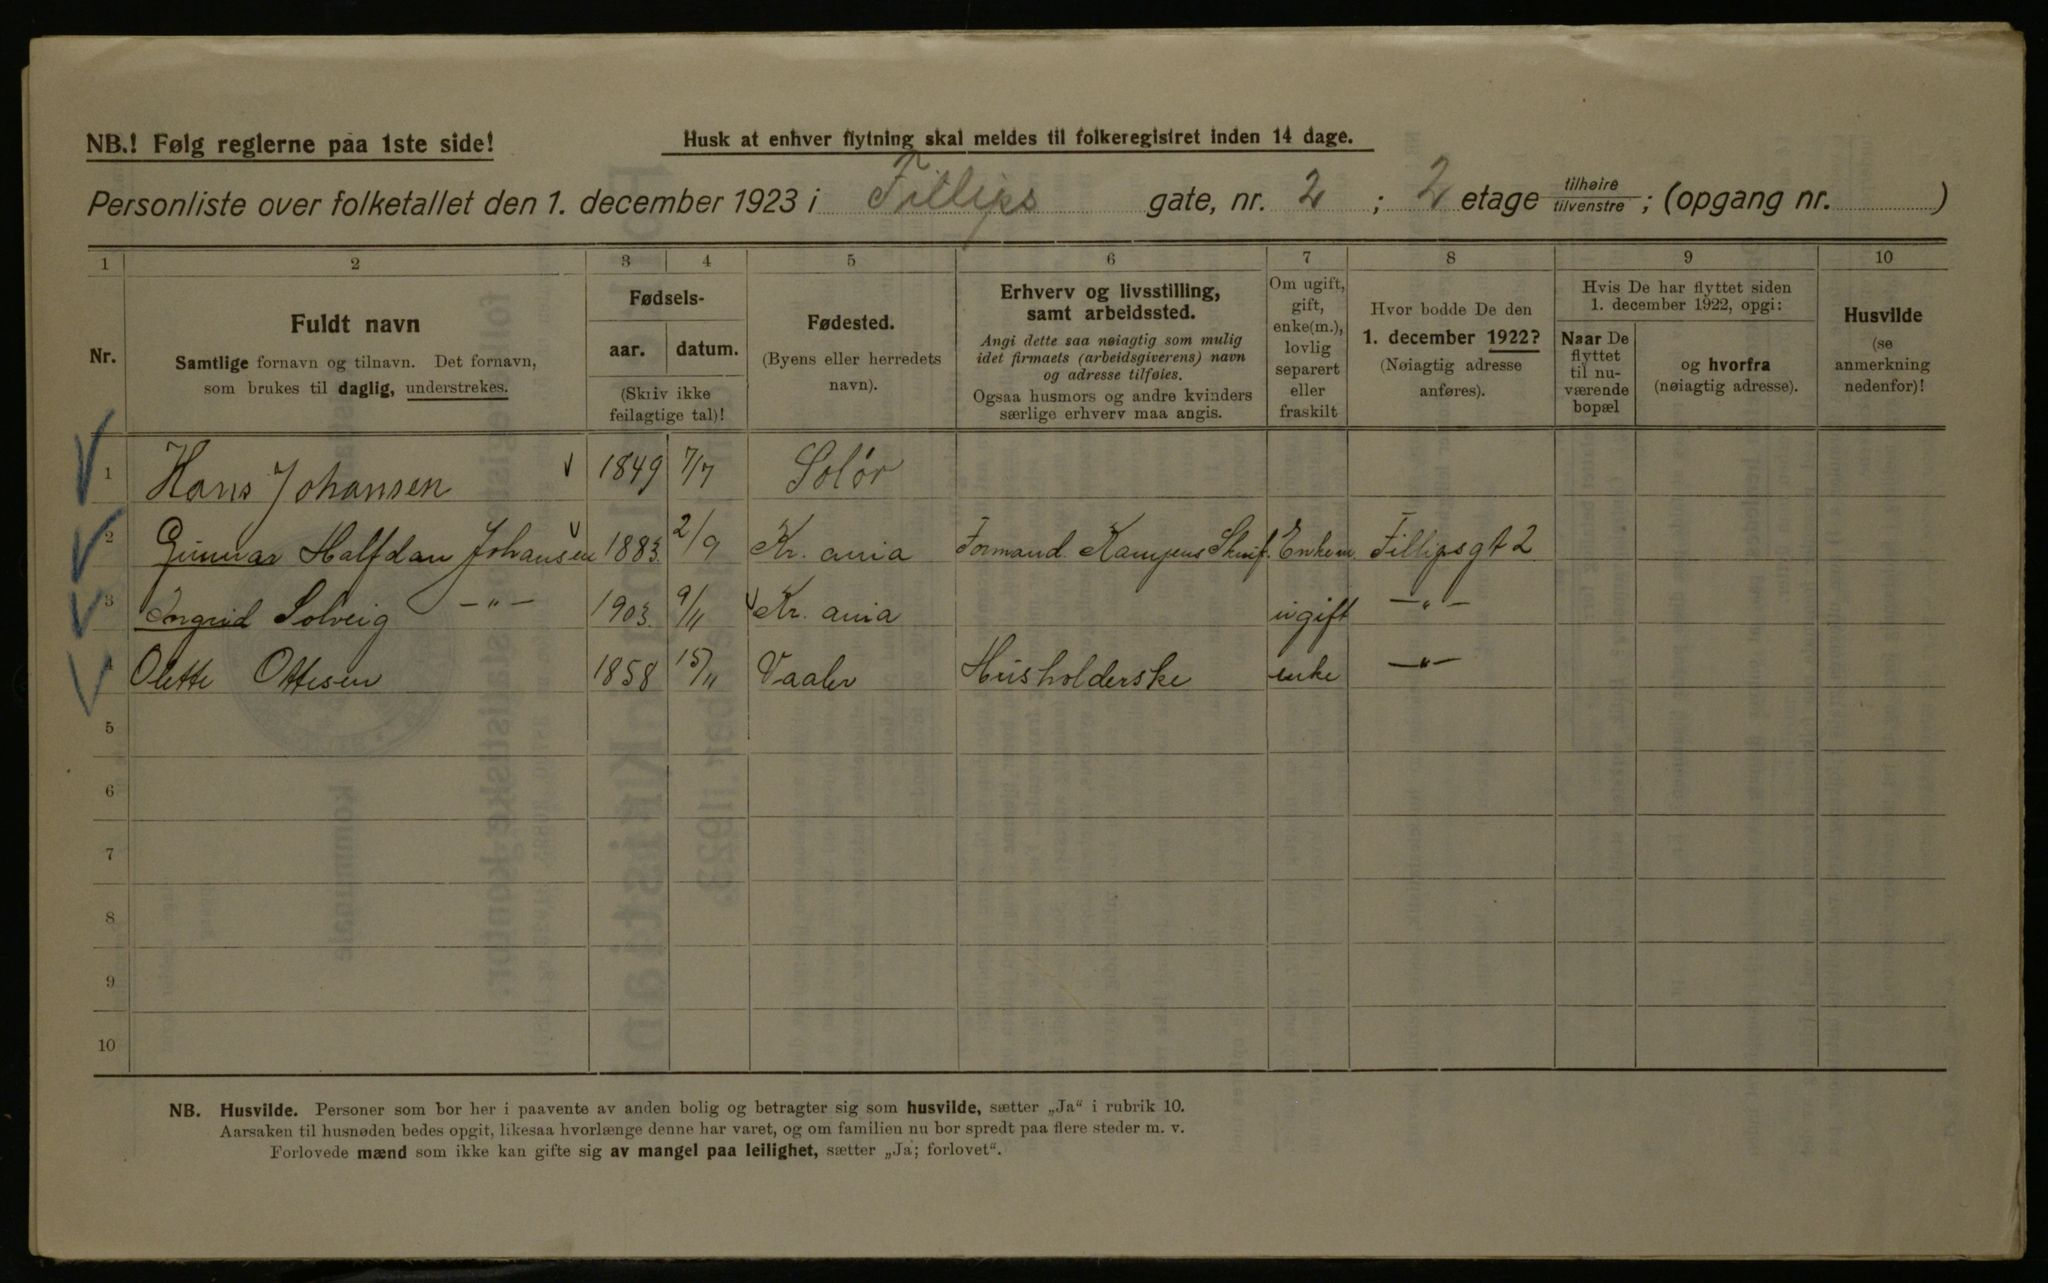 NB.! Følg reglerne paa 1ste side!
Husk at enhver flytning skal meldes til folkeregistret inden 14 dage.
Personliste over folketallet den 1. december 1923 i Fillips gate, nr. 2 ; 2 etage tilhøire tilvenstre ; (opgang nr. )
1 2 3 4 5 6 7 8 9 10
Nr.
Fuldt navn
Samtlige fornavn og tilnavn. Det fornavn,
som brukes til daglig, understrekes.
Fødsels-
aar. datum.
(Skriv ikke
feilagtige tal)!
Fødested.
(Byens eller herredets
navn).
Erhverv og livsstilling,
samt arbeidssted.
Angi dette saa nøiagtig som mulig
idet firmaets (arbeidsgiverens) navn
og adresse tilføies.
Ogsaa husmors og andre kvinders
særlige erhverv maa angis.
Om ugift,
gift,
enke(m.),
lovlig
separert
eller
fraskilt
Hvor bodde De den
1. december 1922?
(Nøiagtig adresse
anføres).
Hvis De har flyttet siden
1. december 1922, opgi:
Naar De
flyttet
til nu-
værende
bopæl
og hvorfra
(nøiagtig adresse).
Husvilde
(se
anmerkning
nedenfor)!
1 Hans Johansen 1849 7/7 Solör
2 Gunnar Halfdan Johansen 1883 2/9 Kr. ania Formand Enkem Fillipsgt 2
3 Ingrid Solveig -"- 1903 9/11 Kr. ania ugift -"-
4 Olette Ottesen 1858 15/11 Vaaler Husholderske enke -"-
5
6
7
8
9
10
NB. Husvilde. Personer som bor her i paavente av anden bolig og betragter sig som husvilde, sætter „Ja“ i rubrik 10.
Aarsaken til husnøden bedes opgit, likesaa hvorlænge denne har varet, og om familien nu bor spredt paa flere steder m. v.
Forlovede mænd som ikke kan gifte sig av mangel paa leilighet, sætter „Ja; forlovet“.